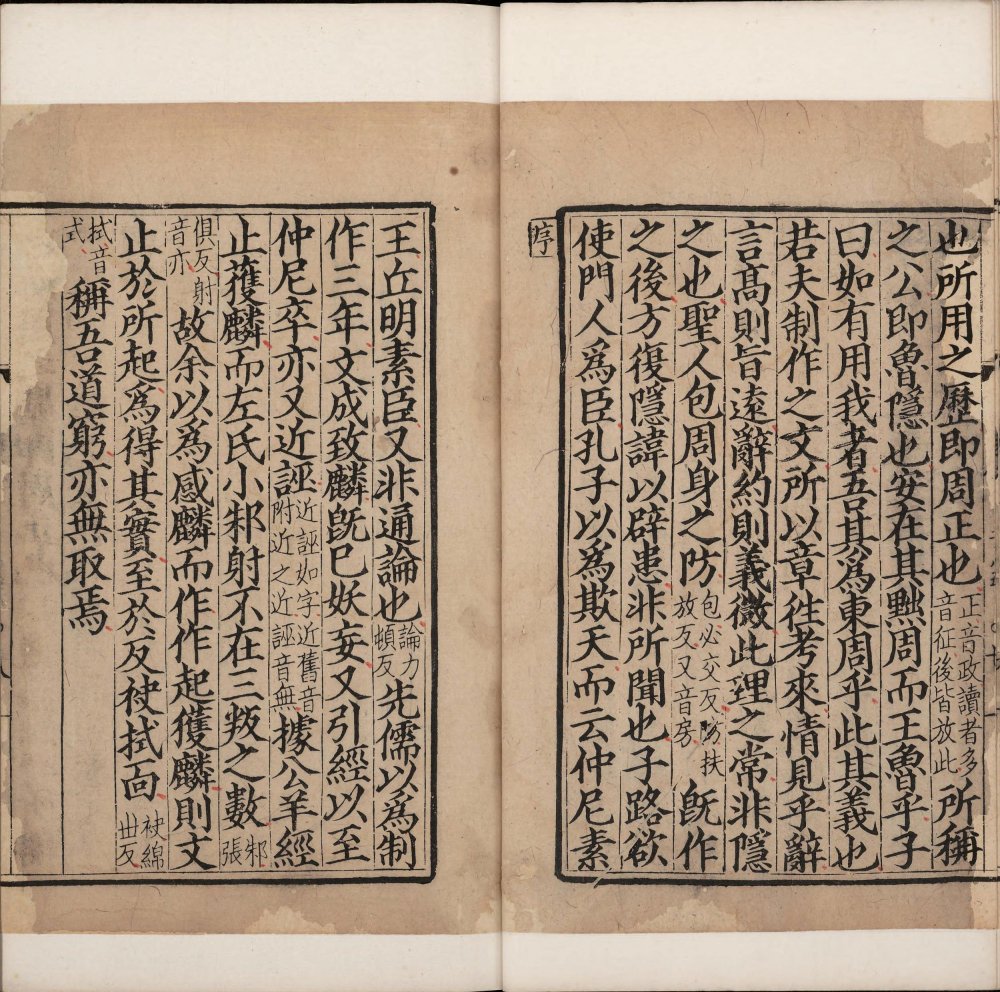 也所用之歷即周正也正音政讀者多音征後皆放此所稱
之公即魯隱也安在其黜周而王魯乎子
曰如有用我者吾其爲東周乎此其義也
若夫制作之文所以章徃考來情見乎辭
言髙則旨逺辭約則義微此理之常非隱
之也聖人包周身之防包必交反防扶放反又音房旣作
之後方復隱諱以辟患非所聞也子路欲
使門人爲臣孔子以為欺天而云仲尼素
序
王丘明素臣又非通論也論力頓反先儒以爲制
作三年文成致麟旣巳妖妄又引經以至
仲尼卒亦又近誣近誣如字近舊音附近之近誣音無據公羊經
止獲麟而左氏小邾射不在三叛之數邾張
俱反射音亦故余以爲感麟而作作起獲麟則文
止於所起爲得其實至於反袂拭面袂綿丗反
拭音式稱吾道窮亦無取焉